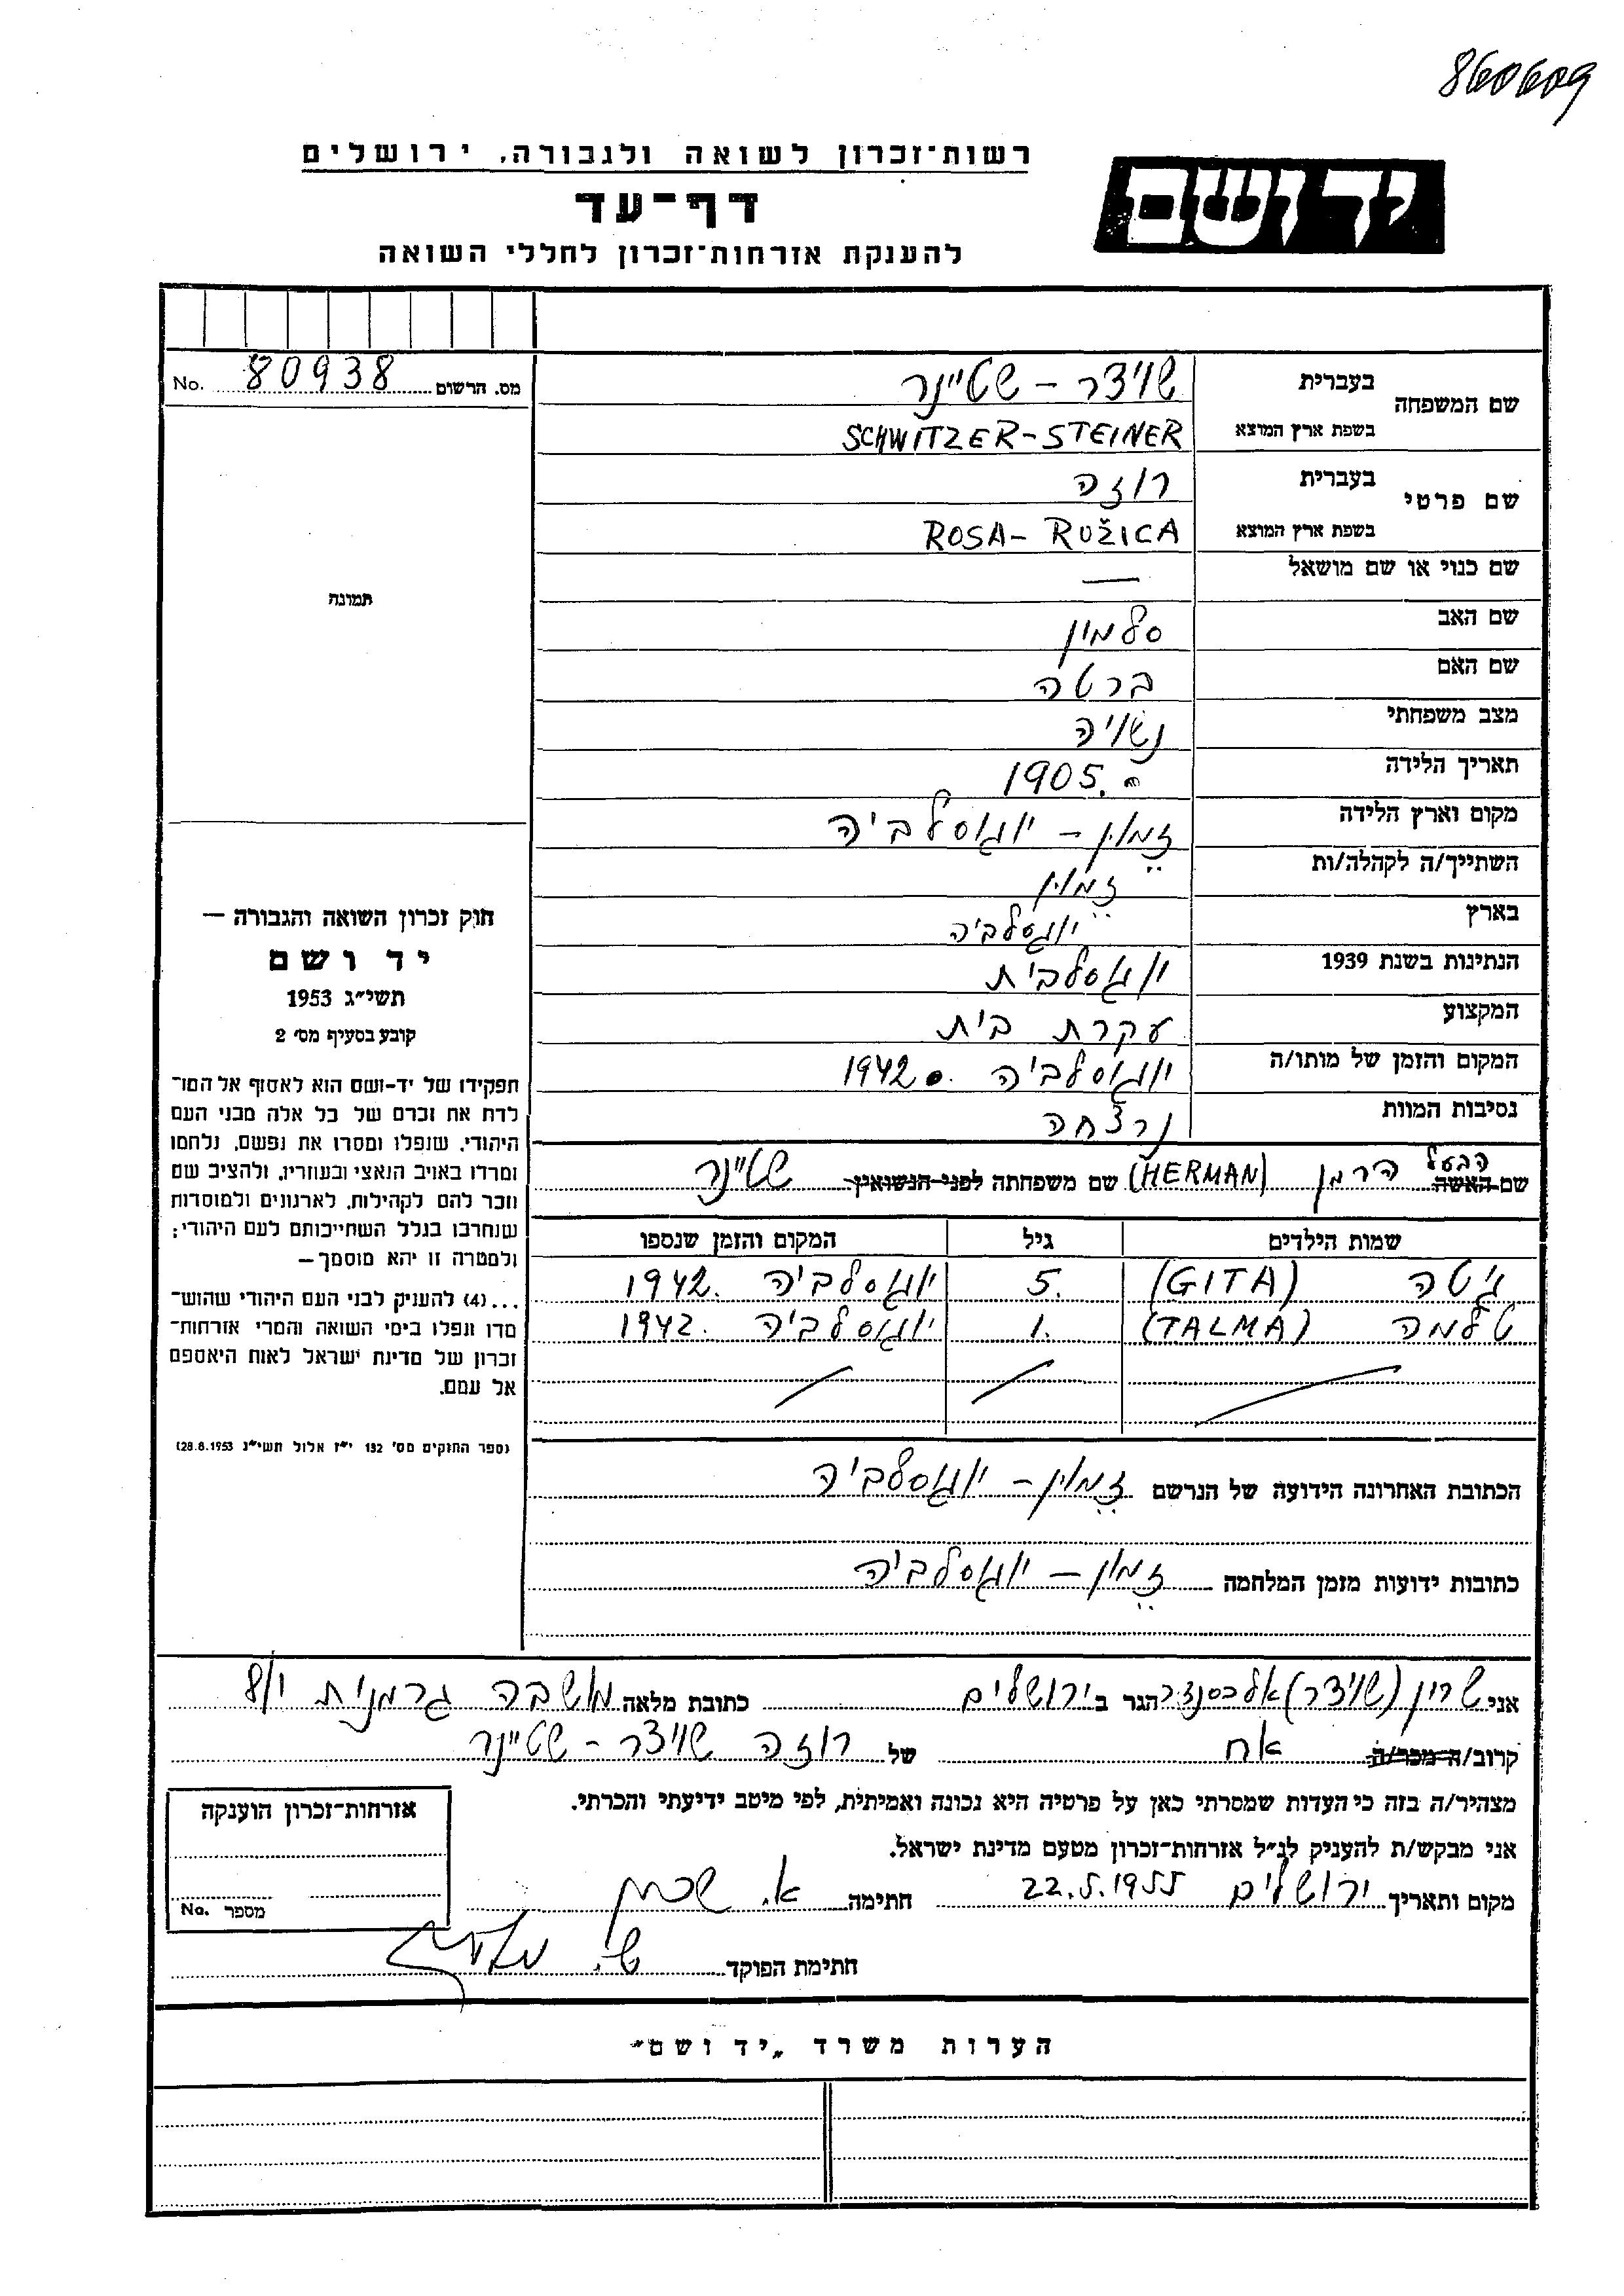 860609
רשות־זכרון לשואה ולגבורה, ירושלים
יד ושם
דף־עד
להענקת אזרחות־זכרון לחללי השואה
מס. הרשום 80938 No.
שם המשפחה בעברית שויצר – שטיינר
בשפת ארץ המוצא SCHWITZER-STEINER
שם פרטי בעברית רוזה
בשפת ארץ המוצא ROSA- RUŽICA
שם כנוי או שם מושאל —
תמונה
שם האב סלמון
שם האם ברטה
מצב משפחתי נשויה
תאריך הלידה 1905.
מקום וארץ הלידה זמון – יוגוסלביה
השתייך/ה לקהלה/ות זמון
בארץ יוגוסלביה
הנתינות בשנת 1939 יוגוסלבית
המקצוע עקרת בית
המקום והזמן של מותו/ה יוגוסלביה 1942.
נסיבות המוות נרצחה
הבעל
שם האשה הרמן (HERMAN) שם משפחתה לפני הנשואין שטיינר
שמות הילדים גיל המקום והזמן שנספו
גיטה (GITA) 5. יוגוסלביה 1942.
טלמה (TALMA) 1. יוגוסלביה 1942.
הכתובת האחרונה הידועה של הנרשם זמון – יוגוסלביה
כתובות ידועות מזמן המלחמה זמון – יוגוסלביה
חוק זכרון השואה והגבורה —
יד ושם
תשי״ג 1953
קובע בסעיף מס׳ 2
תפקידו של יד-ושם הוא לאסוף אל המו־
לדת את זכרם של כל אלה מבני העם
היהודי, שנפלו ומסרו את נפשם, נלחמו
ומרדו באויב הנאצי ובעוזריו, ולהציב שם
וזכר להם לקהילות, לארגונים ולמוסדות
שנחרבו בגלל השתייכותם לעם היהודי;
ולמטרה זו יהא מוסמך—
...(4) להעניק לבני העם היהודי שהוש־
מדו ונפלו בימי השואה והמרי אזרחות־
זכרון של מדינת ישראל לאות היאספם
אל עמם.
(ספר החוקים מס׳ 132 י״ז אלול תשי״ג 28.8.1953)
אני שרון (שויצר) אלכסנדר הגר ב ירושלים כתובת מלאה מושבה גרמנית 8/1
קרוב/ה מכר/ה אח של רוזה שויצר – שטיינר
מצהיר/ה בזה כי העדות שמסרתי כאן על פרטיה היא נכונה ואמיתית, לפי מיטב ידיעתי והכרתי.
אני מבקש/ת להעניק לנ״ל אזרחות־זכרון מטעם מדינת ישראל.
מקום ותאריך ירושלים 22.5.1955 חתימה א.
חתימת הפוקד
אזרחות־זכרון הוענקה
מספר No.
הערות משרד „יד ושם״